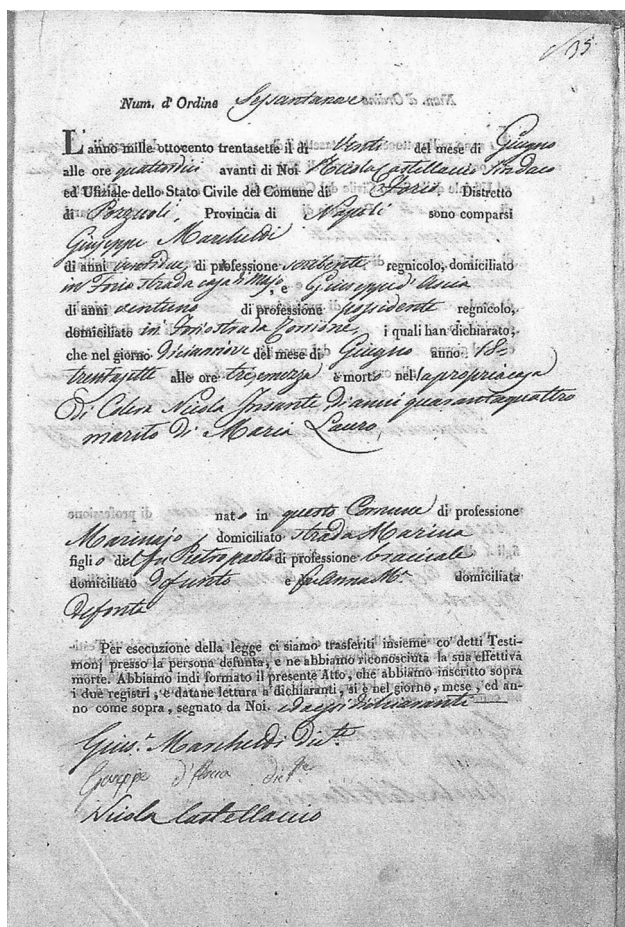 35
Num. d' Ordine Sessantanove
L'anno mille ottocento trentasette il di Venti del mese di Giugno
alle ore quattordici avanti di Noi Nicola Castellaccio Sindaco
ed Ufiziale dello Stato Civile del Comune di Forio Distretto
di Pozzuoli, Provincia di Napoli sono comparsi
Giuseppe Marcheldi
di anni ventidue di professione scribente regnicolo, domiciliato
in Forio strada casa di Majo, e Giuseppe d'Ascia
di anni ventuno di professione possidente regnicolo,
domiciliato in Forio strada Torrione, i quali han dichiarato,
che nel giorno diciannove del mese di Giugno anno 18=
trentasette alle ore tre e mezza è morto nella propria casa
Di Colesa Nicola Insante di anni quarantaquattro
marito di Maria Lauro,
nato in questo Comune di professione
Marinajo domiciliato strada Marina
figlio del fu Pietropaolo di professione bracciale
domiciliato defunto e fu Anna Mª domiciliata
defonta
Per esecuzione della legge ci siamo trasferiti insieme co' detti Testi-
monj presso la persona defunta, e ne abbiamo riconosciuta la sua effettiva
morte. Abbiamo indi formato il presente Atto, che abbiamo inscritto sopra
i due registri, e datane lettura a' dichiaranti, si è nel giorno, mese, ed an-
no come sopra, segnato da Noi. e da essi dichiaranti
Gius.e Marcheldi dic.te
Giuseppe d'Ascia dic.te
Nicola Castellaccio